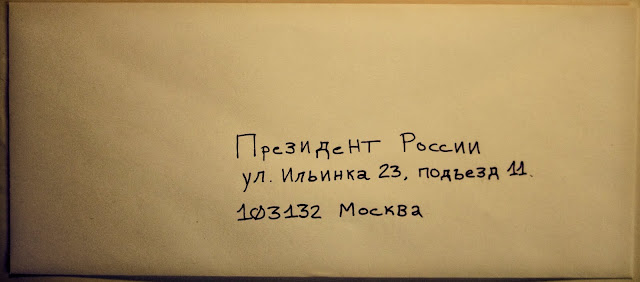 Президент России
ул. Ильинка 23, подъезд 11.
103132 Москва